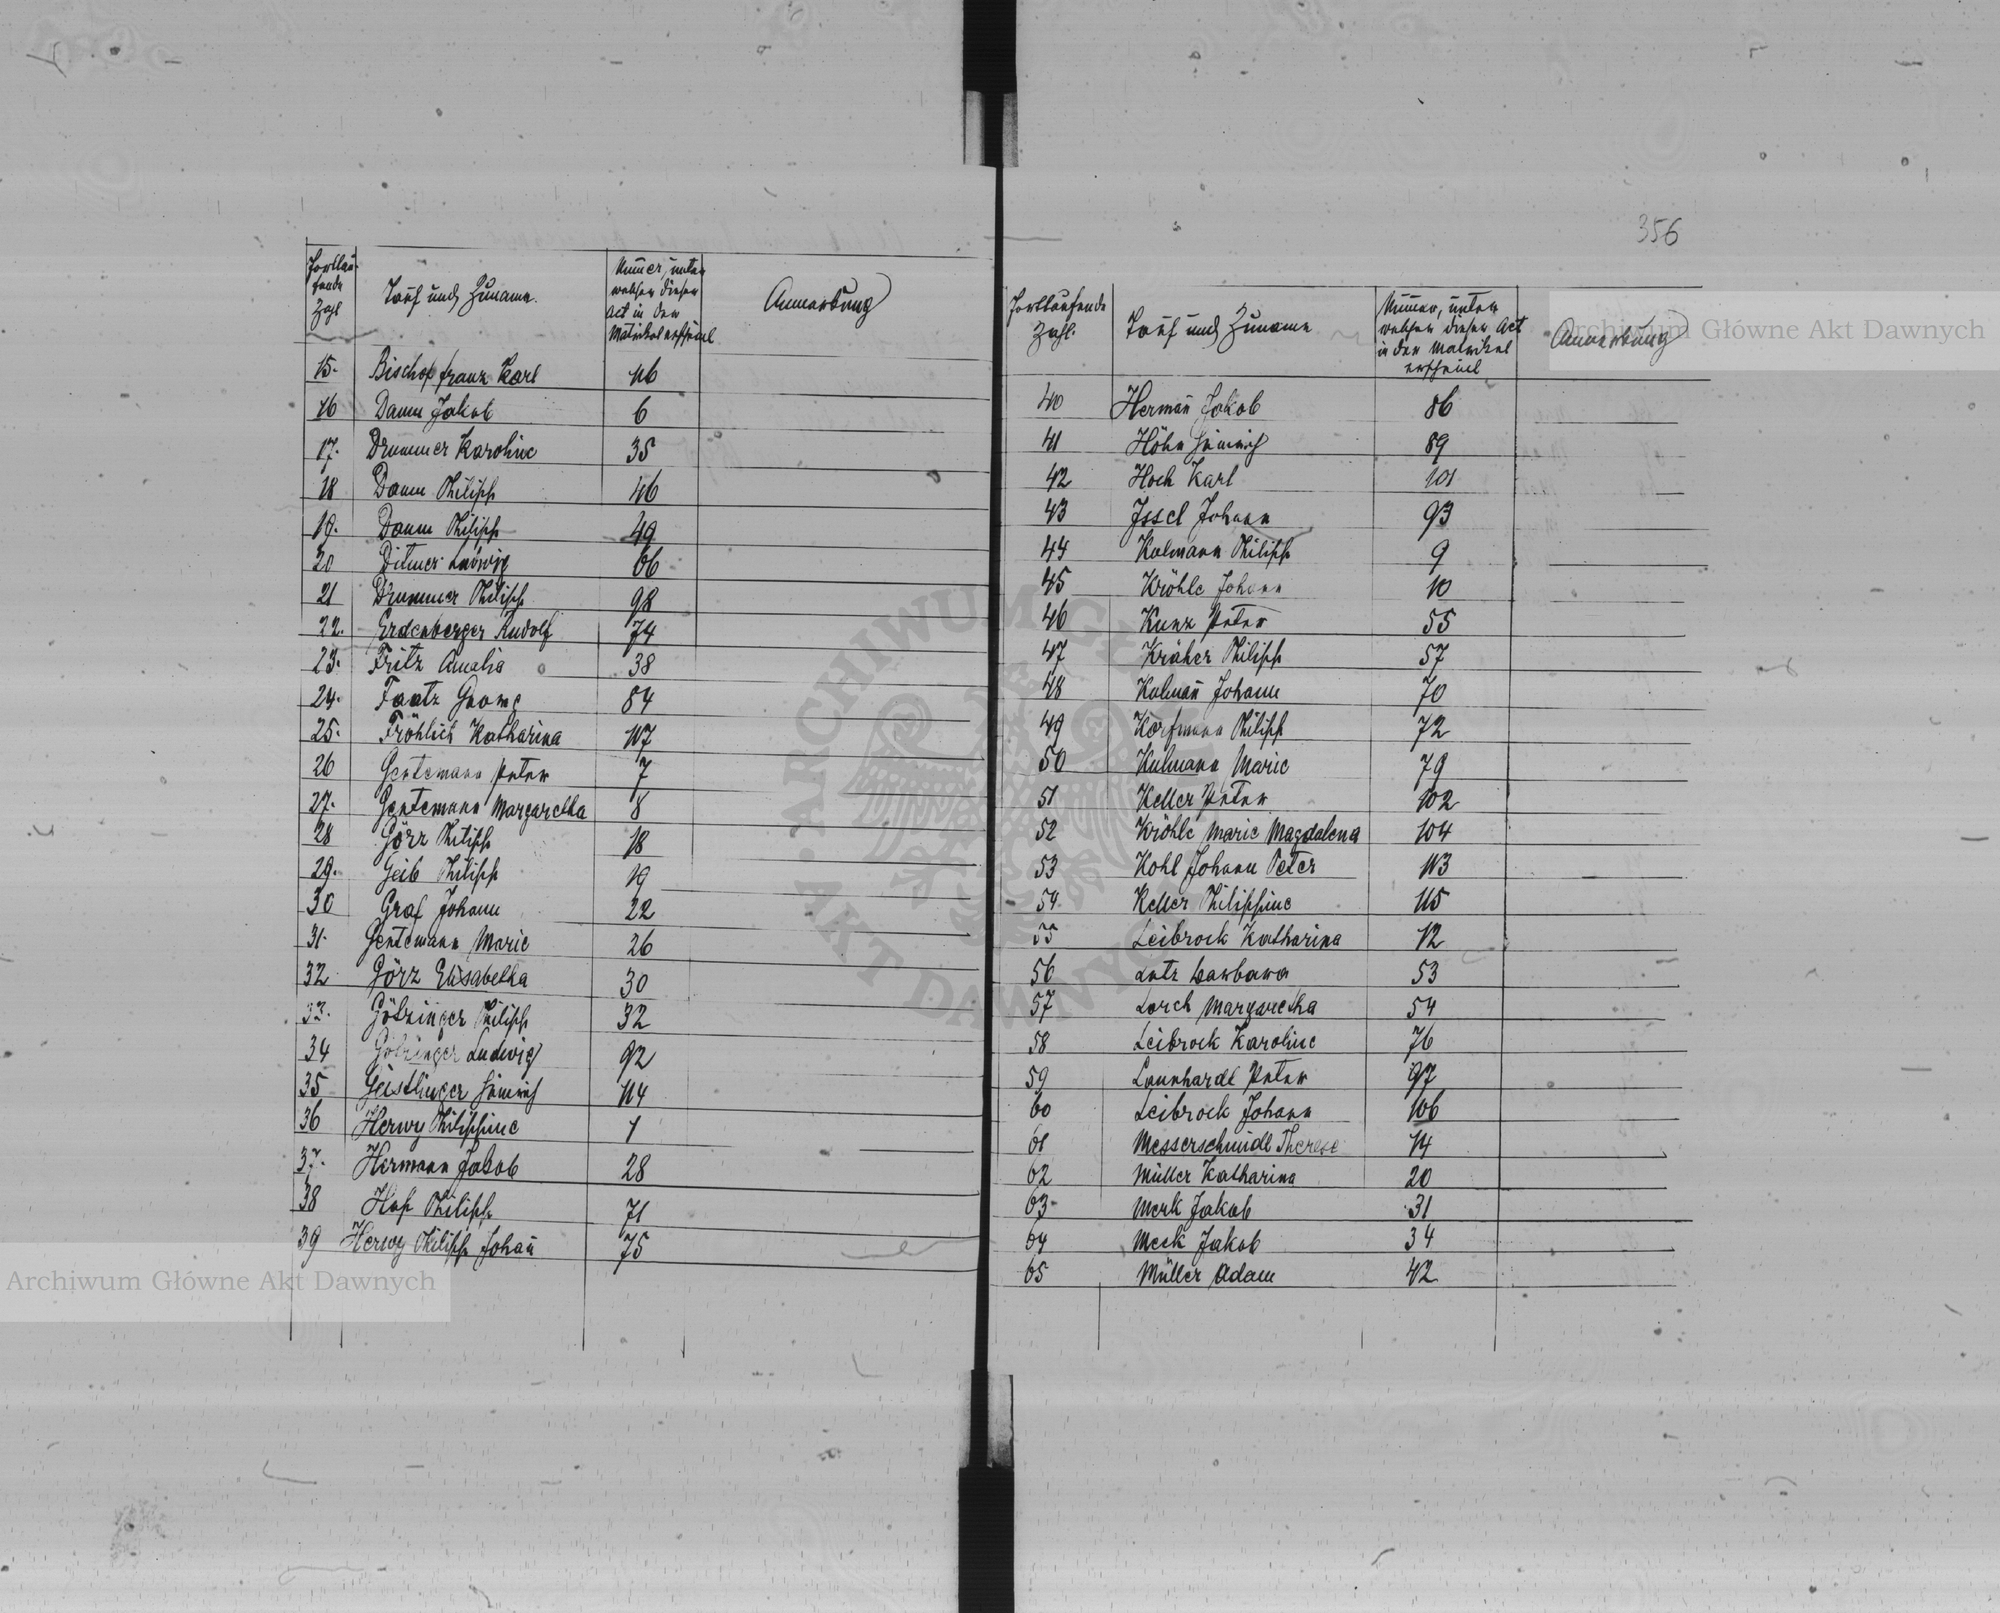 Fortlau-
fende
Zahl
Tauf und Zuname.
Numer, unter
welcher dieser
Act in der
Matrikel erscheint
Anmerkung
15. Bischof Franz Karl 116
16 Damm Jakob 6
17. Drummer Karoline 35
18 Damm Philipp 46
19. Damm Philipp 49
20 Ditmer Ludwig 66
21 Drummer Philipp 98
22. Erdenberger Rudolf 74
23. Fritz Amalia 38
24. Faatz Georg 84
25. Fröhlich Katharina 117
26 Gentemann Peter 7
27. Gentemann Margaretha 8
28 Görz Philipp 18
29. Geib Philipp 19
30 Graf Johann 22
31. Gentemann Marie 26
32 Görz Elisabetha 30
33. Götzinger Philipp 32
34 Götzinger Ludwig 92
35 Geistlinger Heinrich 114
36 Herwy Philippine 1
37. Hermann Jakob 28
38 Haf Philipp 71
39 Herwy Philipp Johañ 75
356
Fortlaufende
Zahl.
Tauf und Zuname
Numer, unter
welcher dieser Act
in der Matrikel
erscheint
Anmerkung
40 Hermañ Jakob 86
41 Höhn Heinrich 89
42 Hoch Karl 101
43 Issel Johann 93
44 Kulmann Philipp 9
45 Kröhle Johann 10
46 Kunz Peter 55
47 Kräher Philipp 57
48 Kulmañ Johann 70
49 Korfmann Philipp 72
50 Kulmann Marie 79
51 Keller Peter 102
52 Kröhle Marie Magdalena 104
53 Kohl Johann Peter 113
54 Keller Philippine 115
55 Leibrock Katharina 12
56 Lutz Barbara 53
57 Lorch Margaretha 54
58 Leibrock Karoline 76
59 Launhardt Peter 97
60 Leibrock Johann 106
61 Messerschmidt Therese 14
62 Müller Katharina 20
63 Merk Jakob 31
64 Meck Jakob 34
65 Müller Adam 42
ARCHIWUM GŁÓWNE AKT DAWNYCH
Archiwum Główne Akt Dawnych
Archiwum Główne Akt Dawnych